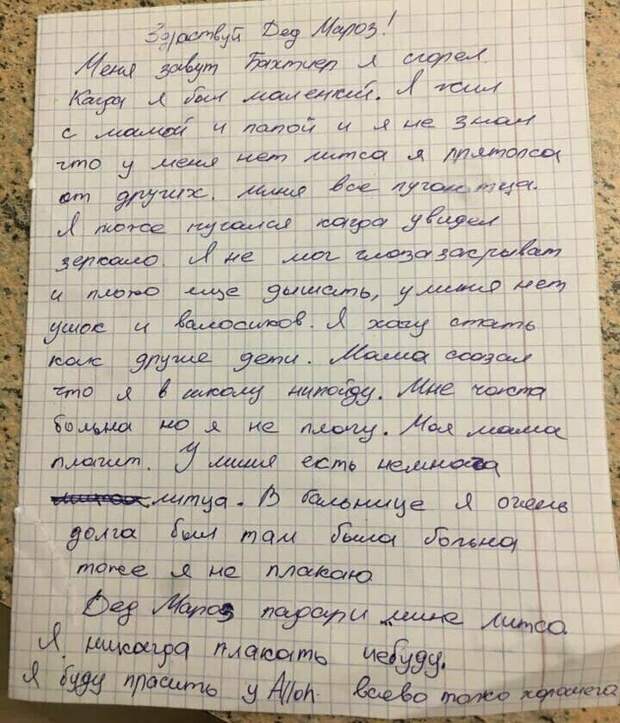 Здраствуй Дед Мароз!
Меня завут Бахтиер я сгорел
Кагда я был маленкий. Я жил
с мамой и папой и я не знал
что у меня нет литса я прятолса
от других. миня все пугаютца.
Я тоже пугался кагда увидел
зеркало. Я не мог глоза засрыват
и плохо ище дышать, у миня нет
ушок и валосиков. Я хачу стать
как другие дети. Мама скозал
что я в школу нипойду. Мне часта
больна но я не плочу. Моя мама
плачит. У миня есть немнога
литца. В балнице я очень
долга был там была больна
тоже я не плакаю
Дед Мароз падари мине литсо
Я никагда плакать небуду.
Я буду прасить у Alloh всево тоже харошега